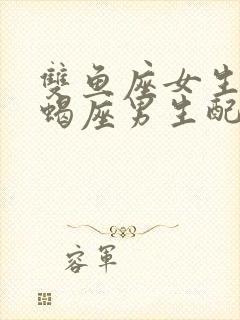 雙鱼座女生
蝎座男生配
容軍